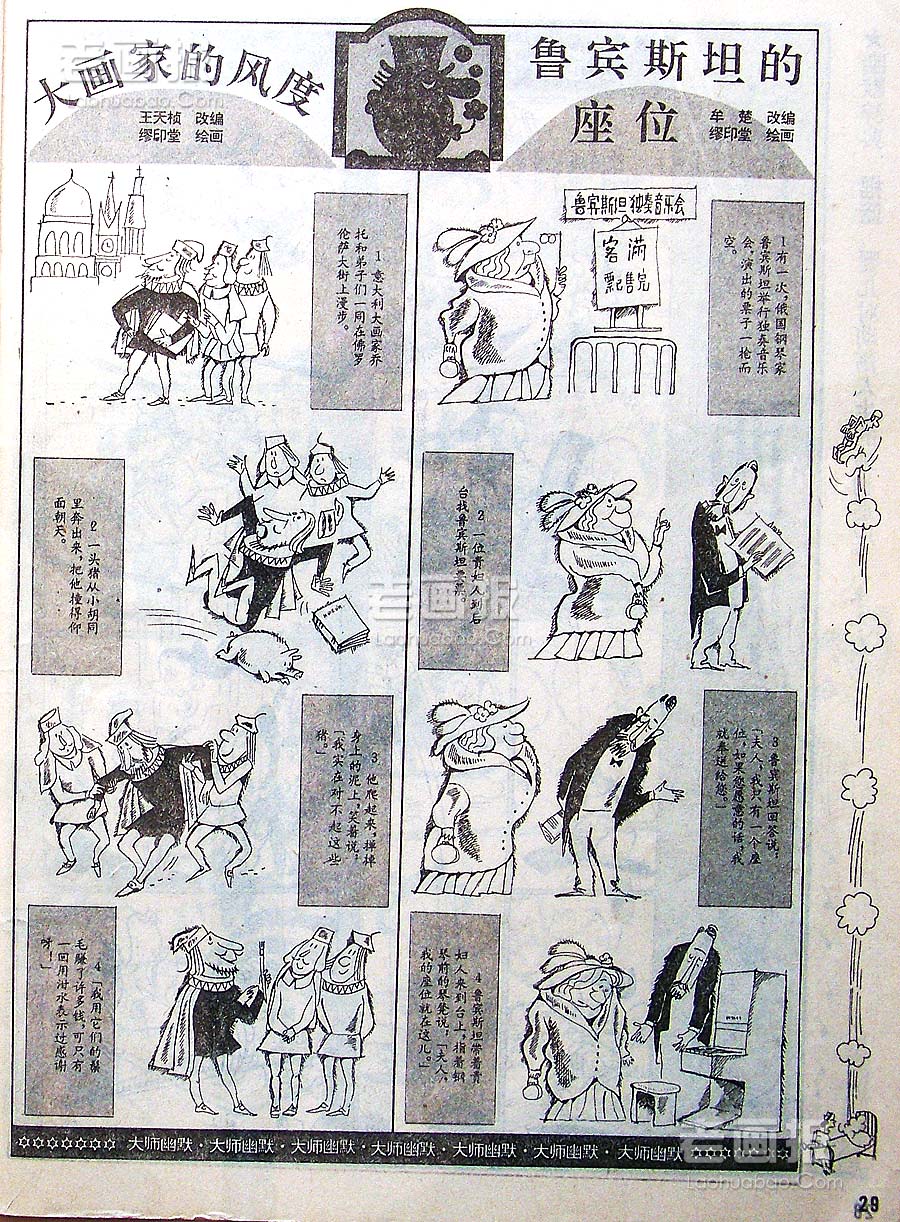 大画家的风度
王天桢 改编
缪印堂 绘画
鲁宾斯坦的
座位
牟楚 改编
缪印堂 绘画
1 意大利大画家乔
托和弟子们一同在佛罗
伦萨大街上漫步。
2 一头猪从小胡同
里奔出来，把他撞得仰
面朝天。
3 他爬起来，掸掸
身上的泥土，笑着说：
「我实在对不起这些
猪。」
4 「我用它们的鬃
毛赚了许多钱，可只有
一回用泔水表示过感谢
呀！」
鲁宾斯坦独奏音乐会
客满
票已售完
1 有一次，俄国钢琴家
鲁宾斯坦举行独奏音乐
会，演出的票子一抢而
空。
2 一位贵妇人到后
台找鲁宾斯坦要票。
3 鲁宾斯坦回答说：
「夫人，我只有一个座
位，如果您愿意的话，我
就奉送给您。」
4 鲁宾斯坦带着贵
妇人来到台上，指着钢
琴前的琴凳说：「夫人，
我的座位就在这儿。」
大师幽默·大师幽默·大师幽默·大师幽默·大师幽默·大师幽默·大师幽默
29
老画报
Laohuabao.Com
老画报
Laohuabao.Com
老画报
Laohuabao.Com
老画报
Laohuabao.Com